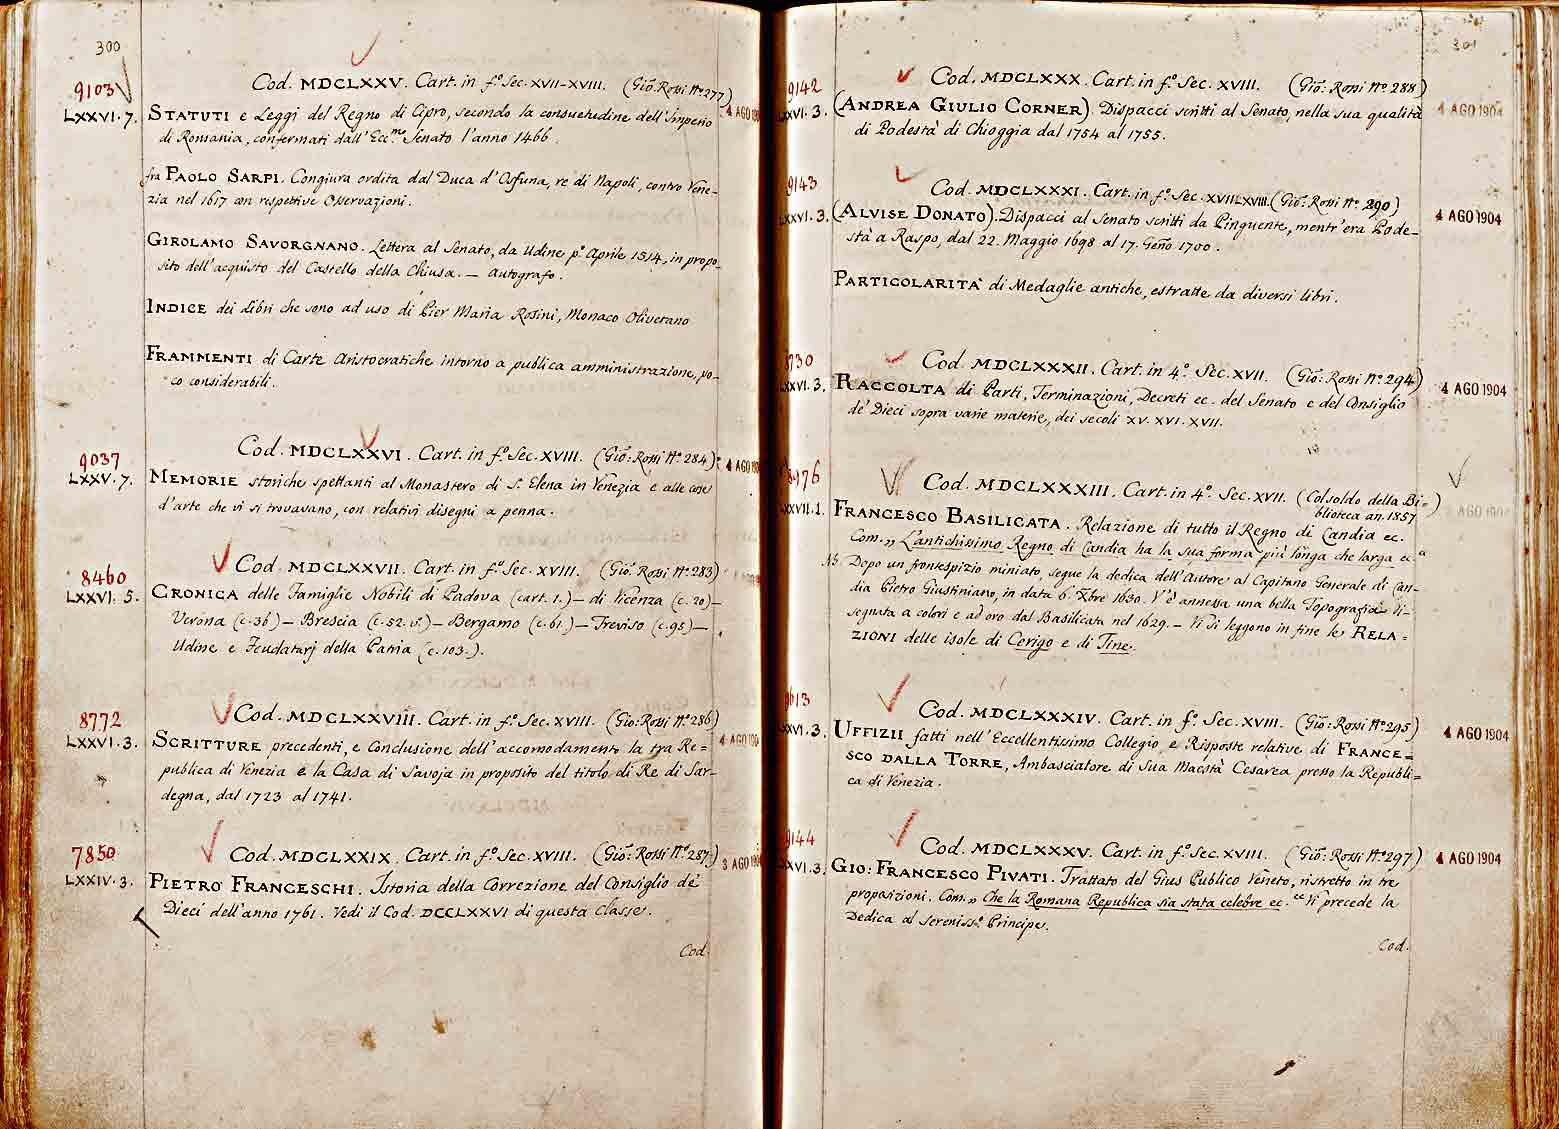 300
9103
LXXVI. 7.
Cod. MDCLXXV. Cart. in fº. Sec. XVII-XVIII. (Gio: Rossi Nº 277)
STATUTI e Leggi del Regno di Cipro, secondo la consuetudine dell'Imperio
4 AGO
di Romania, confermati dall'Ecc.mo Senato l'anno 1466.
fra PAOLO SARPI. Congiura ordita dal Duca d'Ossuna, re di Napoli, contro Vene-
zia nel 1617 con respettive Osservazioni.
GIROLAMO SAVORGNANO. Lettera al Senato, da Udine pº Aprile 1514, in propo-
sito dell'acquisto del Castello della Chiusa. — autografo.
INDICE dei Libri che sono ad uso di Pier Maria Rosini, Monaco Olivetano
FRAMMENTI di Carte Aristocratiche intorno a publica amministrazione, po-
co considerabili.
9037
LXXV. 7.
Cod. MDCLXXVI. Cart. in fº. Sec. XVIII. (Gio: Rossi Nº 284)
4 AGO
MEMORIE storiche spettanti al Monastero di S. Elena in Venezia e alle cose
d'arte che vi si trovavano, con relativi disegni a penna.
8460
LXXVI. 5.
Cod. MDCLXXVII. Cart. in fº. Sec. XVIII. (Gio: Rossi Nº 283)
CRONICA delle Famiglie Nobili di Padova (cart. 1.) — di Vicenza (c. 20) —
Verona (c. 36) — Brescia (c. 52. vº) — Bergamo (c. 61.) — Treviso (c. 95) —
Udine e Feudatarj della Patria (c. 103.).
8772
LXXVI. 3.
Cod. MDCLXXVIII. Cart. in fº. Sec. XVIII. (Gio: Rossi Nº 286)
4 AGO
SCRITTURE precedenti, e Conclusione dell'accomodamento la tra Re=
publica di Venezia e la Casa di Savoja in proposito del titolo di Re di Sar-
degna, dal 1723 al 1741.
7850
LXXIV. 3.
Cod. MDCLXXIX. Cart. in fº. Sec. XVIII. (Gio: Rossi Nº 287.)
3 AGO
PIETRO FRANCESCHI. Istoria della Correzione del Consiglio de'
Dieci dell'anno 1761. Vedi il Cod. DCCLXXVI di questa Classe.
Cod.
301
9142
LXXVI. 3.
Cod. MDCLXXX. Cart. in fº. Sec. XVIII. (Gio: Rossi Nº 288)
(ANDREA GIULIO CORNER). Dispacci scritti al Senato, nella sua qualità
4 AGO 1904
di Podestà di Chioggia dal 1754 al 1755.
9143
LXXVI. 3.
Cod. MDCLXXXI. Cart. in fº. Sec. XVII-XVIII. (Gio: Rossi Nº 290)
(ALVISE DONATO). Dispacci al Senato scritti da Pinguente, mentr'era Pode-
4 AGO 1904
stà a Raspo, dal 22. Maggio 1698 al 17. Genº 1700.
PARTICOLARITÀ di Medaglie antiche, estratte da diversi libri.
8730
LXXVI. 3.
Cod. MDCLXXXII. Cart. in 4º. Sec. XVII. (Gio: Rossi Nº 294)
4 AGO 1904
RACCOLTA di Parti, Terminazioni, Decreti ec. del Senato e del Consiglio
de' Dieci sopra varie materie, dei secoli XV. XVI. XVII.
8976
LXXVII. 1.
Cod. MDCLXXXIII. Cart. in 4º. Sec. XVII. (Col soldo della Bi=
blioteca an. 1857)
AGO 1904
FRANCESCO BASILICATA. Relazione di tutto il Regno di Candia ec.
Com. „ L'antichissimo Regno di Candia ha la sua forma più longa che larga ec."
NB. Dopo un frontespizio miniato, segue la dedica dell'Autore al Capitano Generale di Can-
dia Pietro Giustiniano, in data 6. Xbre 1630. V'è annessa una bella Topografia di-
segnata a colori e ad oro dal Basilicata nel 1629. — Vi si leggono in fine le RELA=
ZIONI delle isole di Cerigo e di Tine.
9613
LXXVI. 3.
Cod. MDCLXXXIV. Cart. in fº. Sec. XVIII. (Gio: Rossi Nº 295)
4 AGO 1904
UFFIZII fatti nell'Eccellentissimo Collegio e Risposte relative di FRANCE=
SCO DALLA TORRE, Ambasciatore di Sua Maestà Cesarea presso la Republi=
ca di Venezia.
9144
LXXVI. 3.
Cod. MDCLXXXV. Cart. in fº. Sec. XVIII. (Gio: Rossi Nº 297)
4 AGO 1904
GIO: FRANCESCO PIVATI. Trattato del Gius Publico Veneto, ristretto in tre
proposizioni. Com. „ Che la Romana Republica sia stata celebre ec." Vi precede la
Dedica al Sereniss.º Principe.
Cod.